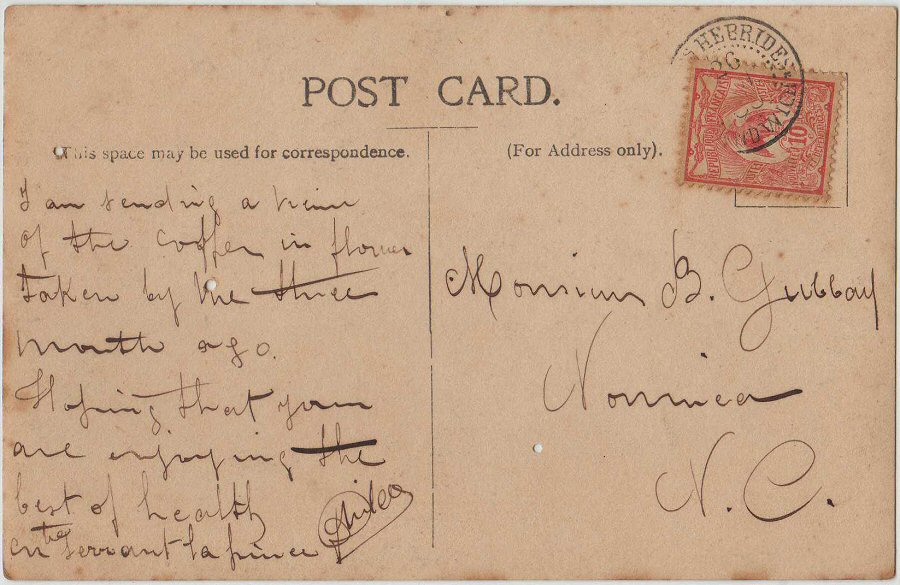 POST CARD.
This space may be used for correspondence.
(For Address only).
HEBRIDES
10
I am sending a view
of the coffee in flower
Taken by me three
month ago.
Hoping that you
are enjoying the
best of health
Monsieur B. Gubbay
Noumea
N. C.